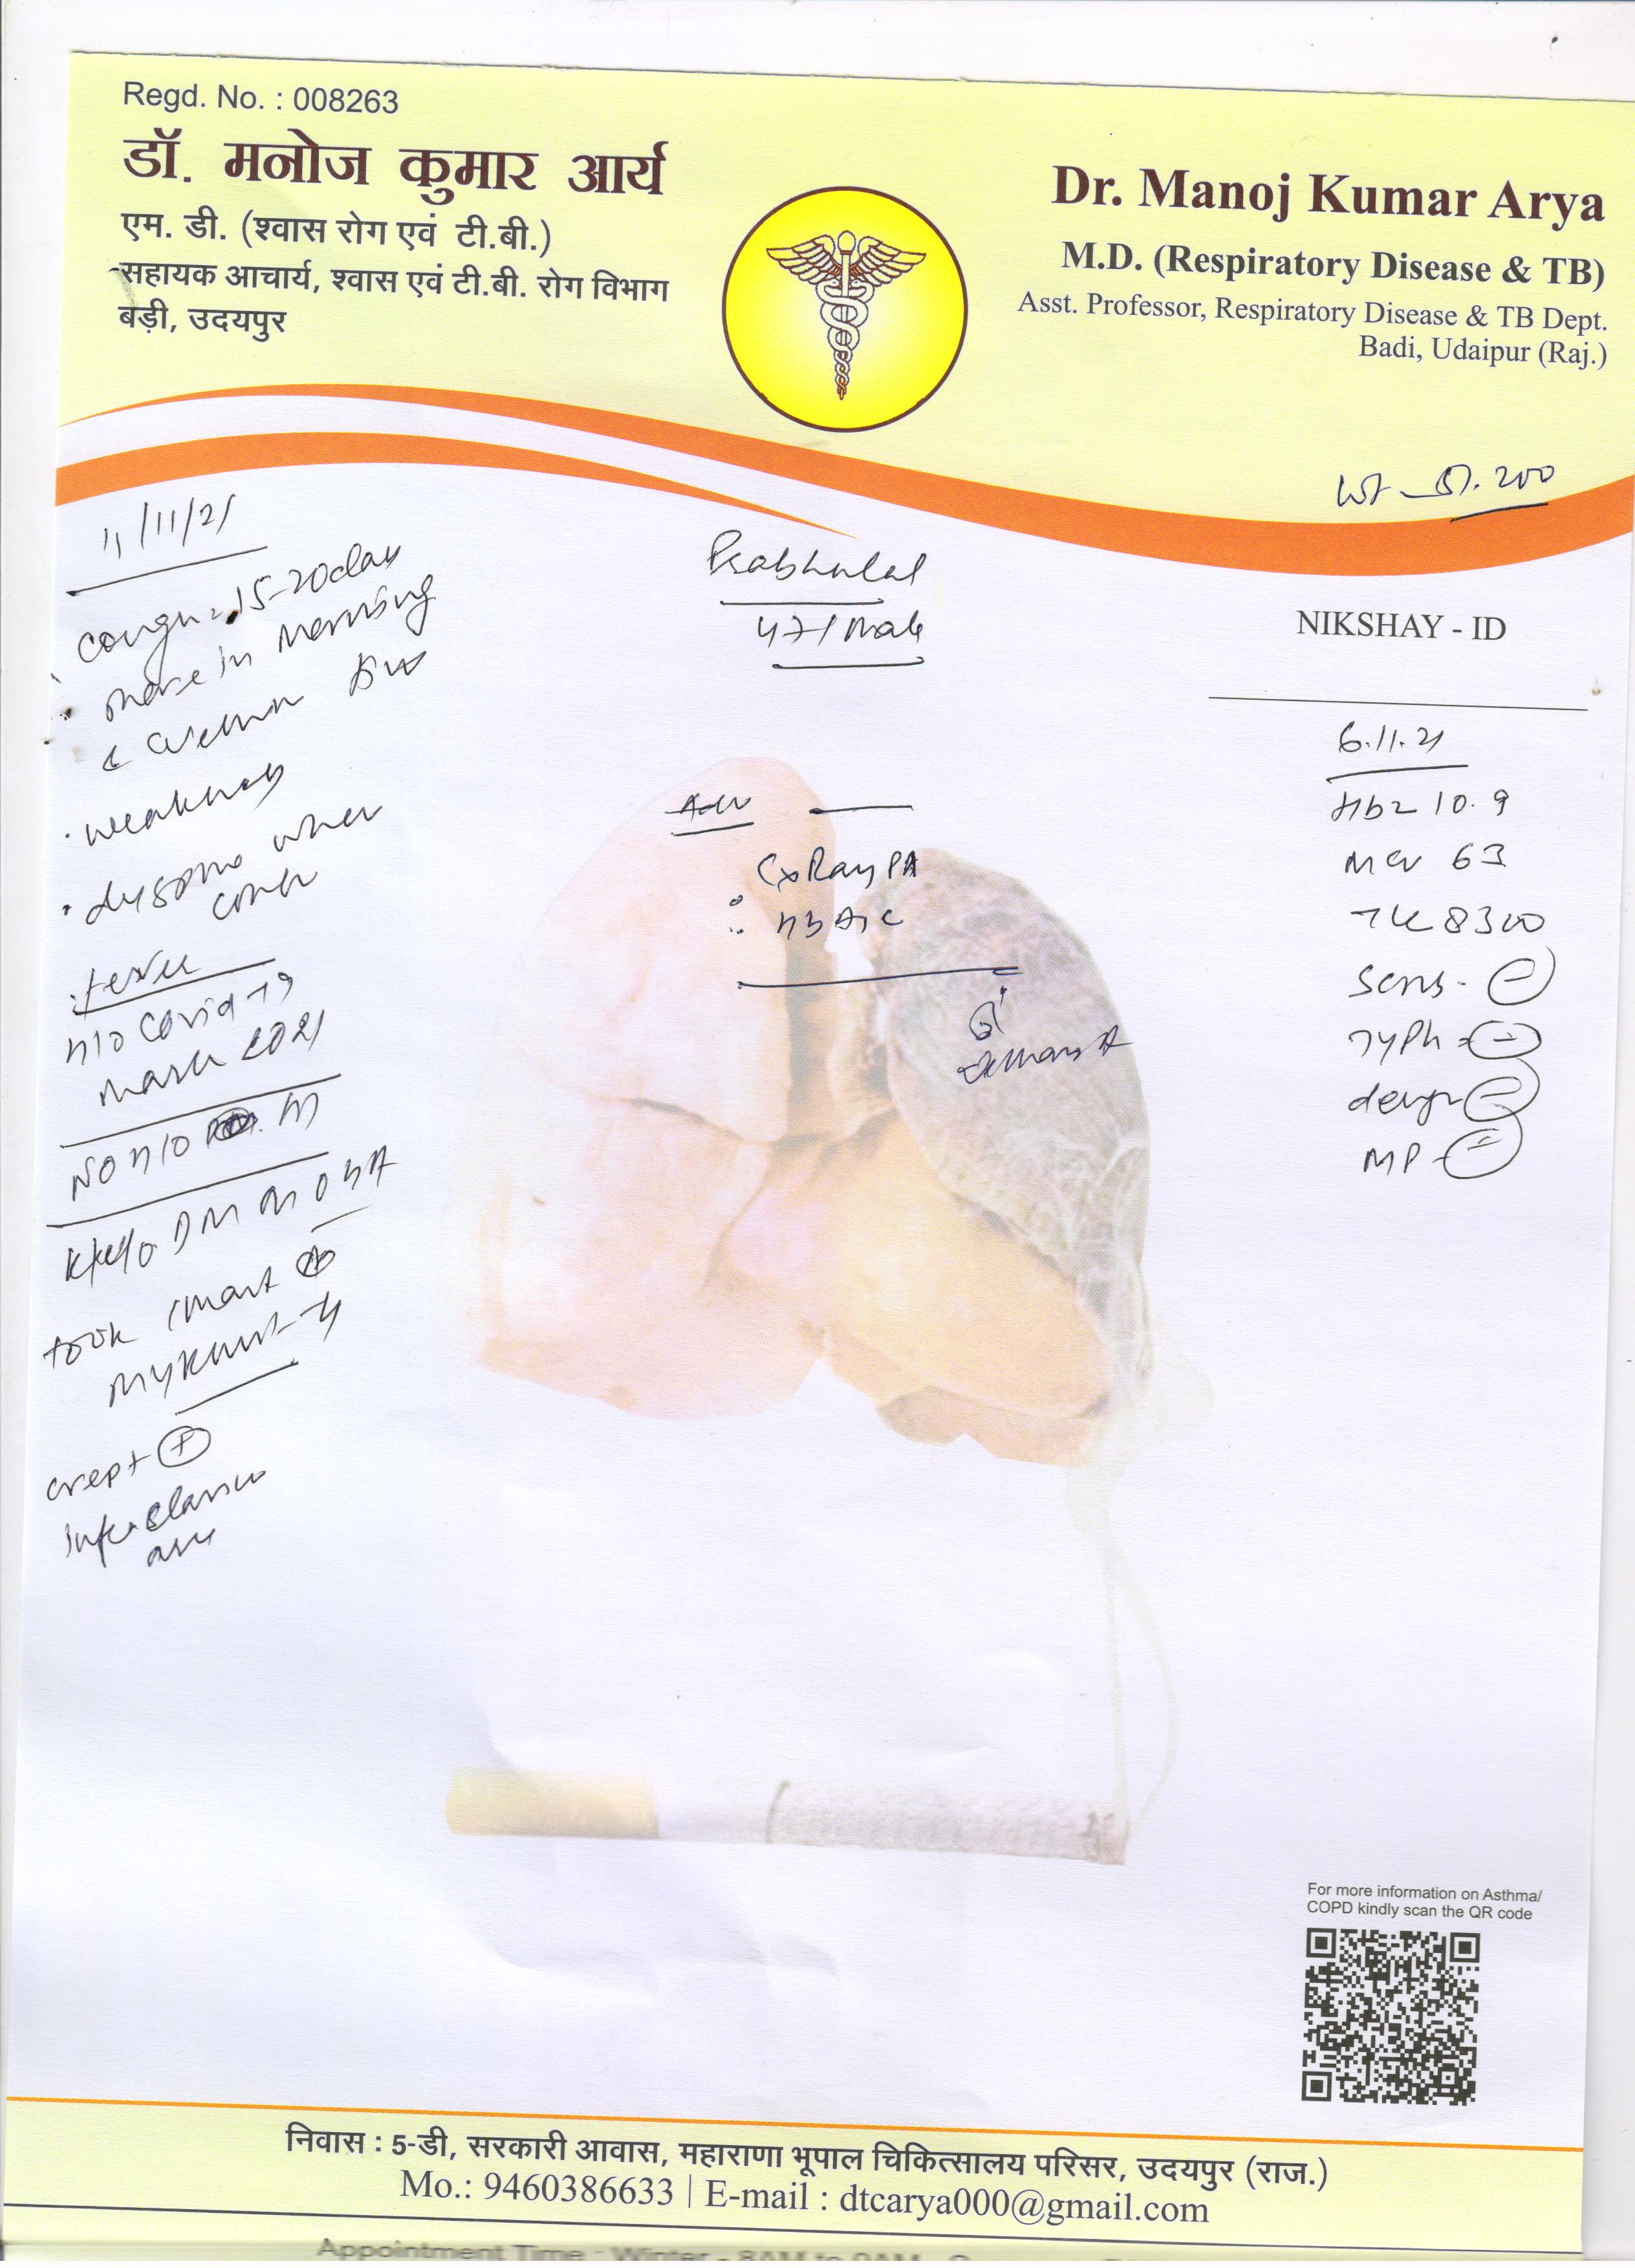 Regd. No. : 008263
डॉ. मनोज कुमार आर्य
एम. डी. (श्वास रोग एवं टी.बी.)
सहायक आचार्य, श्वास एवं टी.बी. रोग विभाग
बड़ी, उदयपुर
Dr. Manoj Kumar Arya
M.D. (Respiratory Disease & TB)
Asst. Professor, Respiratory Disease & TB Dept.
Badi, Udaipur (Raj.)
Wt - 51.200
11/11/21
Cough 15-20 day
more in morning
weakness
when
cough
fever
H/o Covid-19
March 2021
No H/o
K/c/o DM on OHA
took
crept (+)
infraclavicular
area
Prabhulal
47/Male
Adv
CxRay PA
HbA1c
NIKSHAY - ID
6.11.21
Hb= 10.9
MCV 63
TLC 8300
(-)
Typh = (-)
(-)
MP - (-)
For more information on Asthma/
COPD kindly scan the QR code
निवास : 5-डी, सरकारी आवास, महाराणा भूपाल चिकित्सालय परिसर, उदयपुर (राज.)
Mo.: 9460386633 | E-mail : dtcarya000@gmail.com
Appointment Time : Winter - 8AM to 9AM